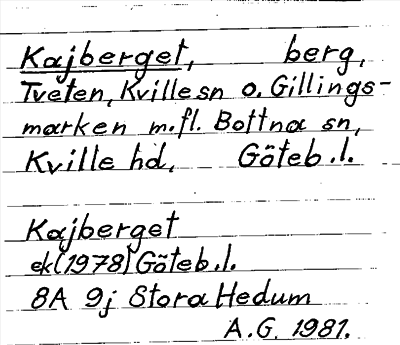 Kajberget, berg,
Tveten, Kville sn o. Gillings-
marken m.fl. Bottna sn,
Kville hd, Göteb.l.
Kajberget
ek(1978) Göteb.l.
8A 9j Stora Hedum
A.G. 1981.